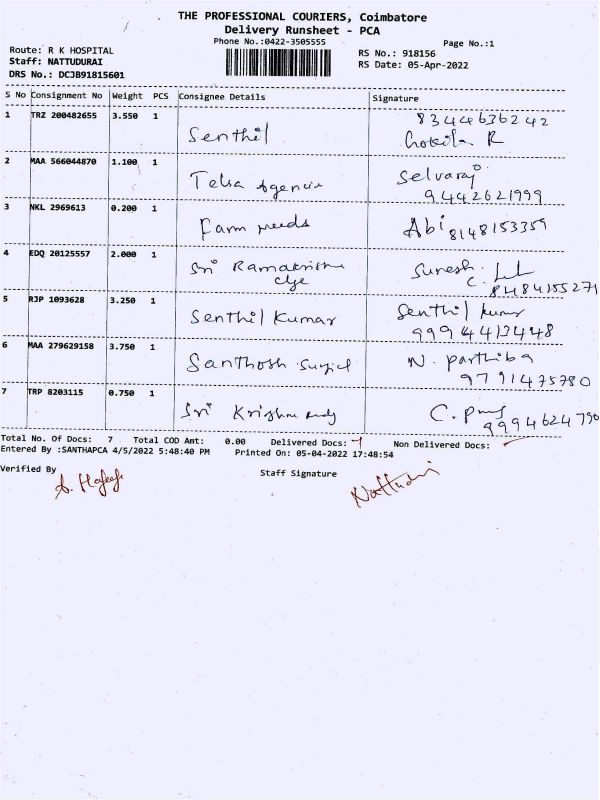 THE PROFESSIONAL COURIERS, Coimbatore
Delivery Runsheet - PCA
Phone No.:0422-3505555
Page No.:1
Route: R K HOSPITAL
RS No.: 918156
Staff: NATTUDURAI
RS Date: 05-Apr-2022
DRS No.: DCJB91815601
S No Consignment No Weight PCS Consignee Details Signature
1 TRZ 200482655 3.550 1 Senthil 8344636242
R
2 MAA 566044870 1.100 1 Telsa Agencie Selvaraj
9442621999
3 NKL 2969613 0.200 1 Farm needs Abi 8148153359
4 EDQ 20125557 2.000 1 Sri Ramakrishna Suresh.
clge C. 8484155271
5 RJP 1093628 3.250 1 Senthil Kumar Senthil Kumar
9994413448
6 MAA 279629158 3.750 1 Santhosh Surgical N. parthiba
9791475780
7 TRP 8203115 0.750 1 Sri Krishna C.
9994624790
Total No. Of Docs: 7 Total COD Amt: 0.00 Delivered Docs: Non Delivered Docs:
Entered By :SANTHAPCA 4/5/2022 5:48:40 PM Printed On: 05-04-2022 17:48:54
Verified By Staff Signature